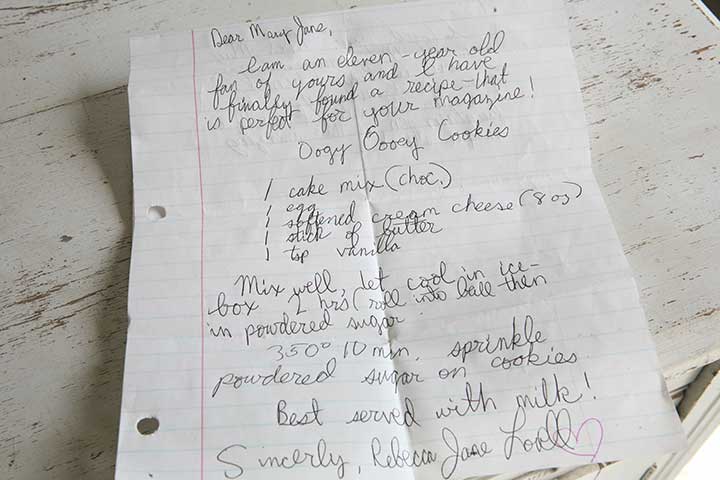 Dear Mary Jane,
I am an eleven-year old
fan of yours and I have
finally found a recipe that
is perfect for your magazine!
Oogy Gooey Cookies
1 cake mix (choc.)
1 egg
1 softened cream cheese (8 oz)
1 stick of butter
1 tsp vanilla
Mix well, let cool in ice-
box 2 hrs (roll into ball then
in powdered sugar.
350° 10 min. sprinkle
powdered sugar on cookies
Best served with milk!
Sincerly, Rebecca Jane